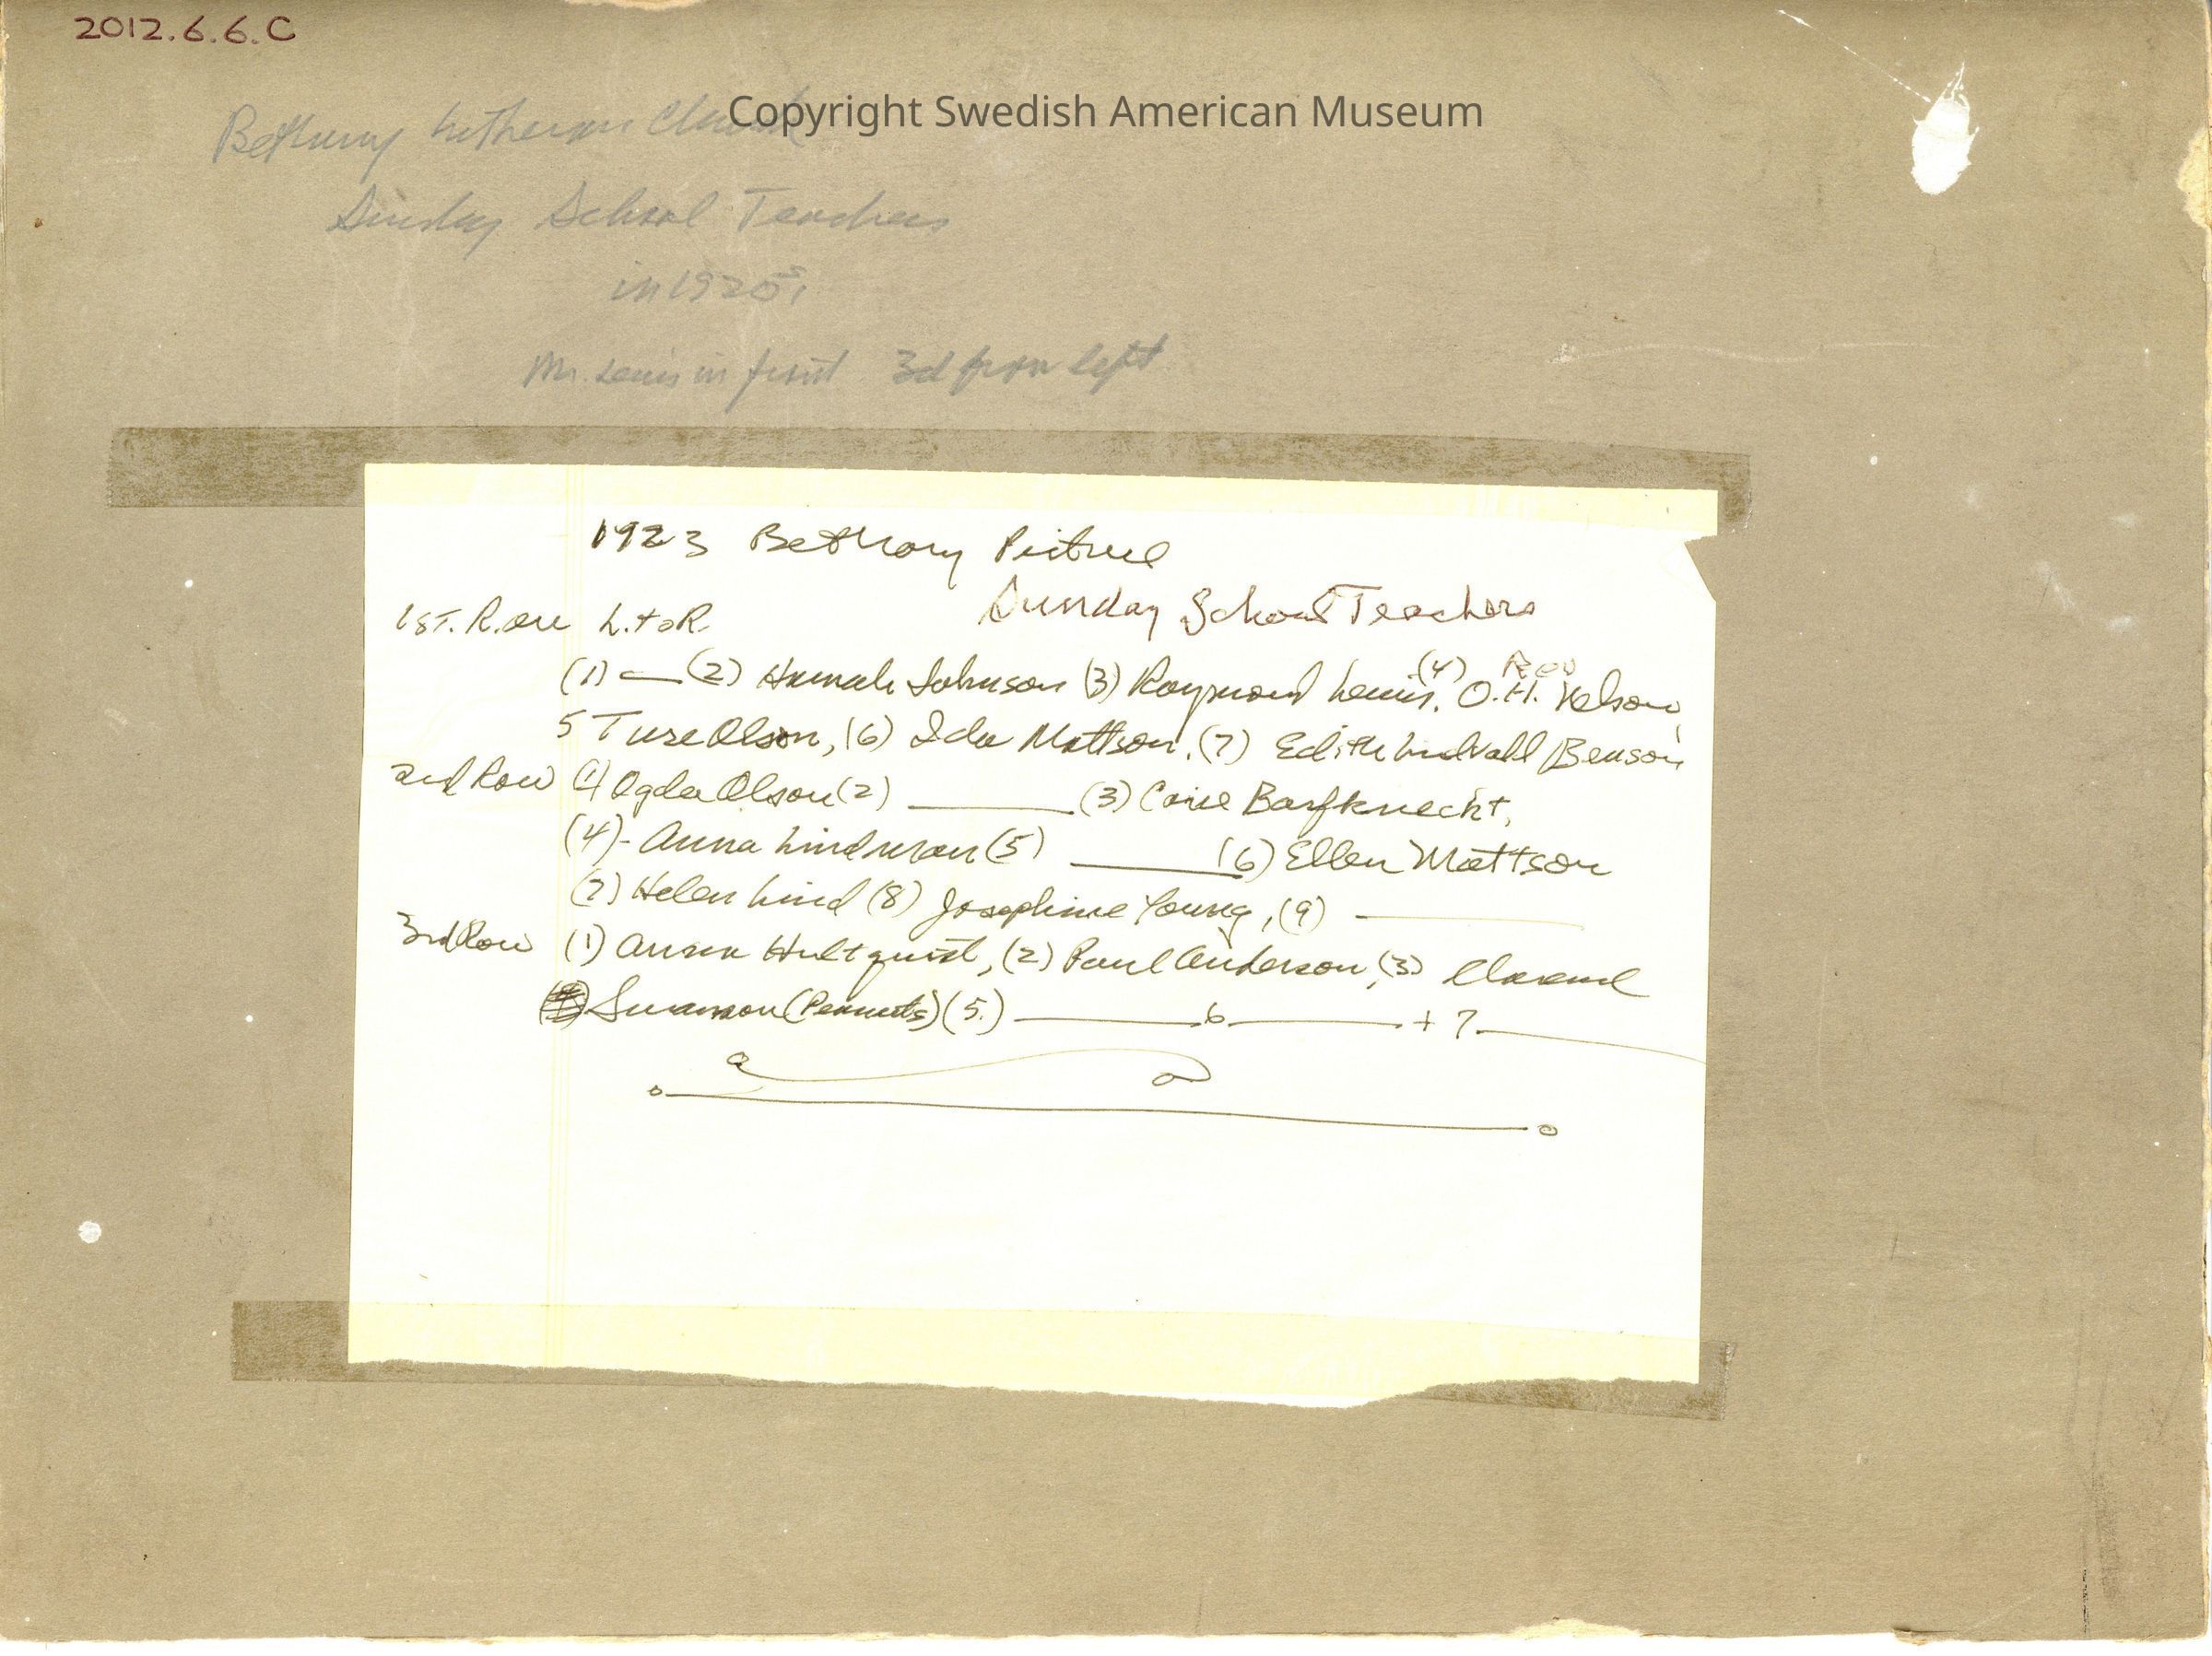 2012.6.6.C
Copyright Swedish American Museum
Bethany Lutheran Church
Sunday School Teachers
in 1920s
Mr. Lewis in front 3d from left
1923 Bethany Picture
Sunday School Teachers
1ST. Row L. to R.
(1) — (2) Hannah Johnson (3) Raymond Lewis, (4) Rev O.H. Nelson,
5 Ture Olson, (6) Ida Mattson, (7) Edith Lindvall Benson
2nd Row (1) Ogda Olson (2) ______ (3) Barfknecht,
(4) - Anna Lindman (5) ______ (6) Ellen Mattson
(7) Helen Lind (8) Josephine Young, (9) ______
3rd Row (1) Anna Hultquist, (2) Paul Anderson, (3) Clarence
Swanson (Peanuts) (5.) ______ 6 ______ + 7 ______